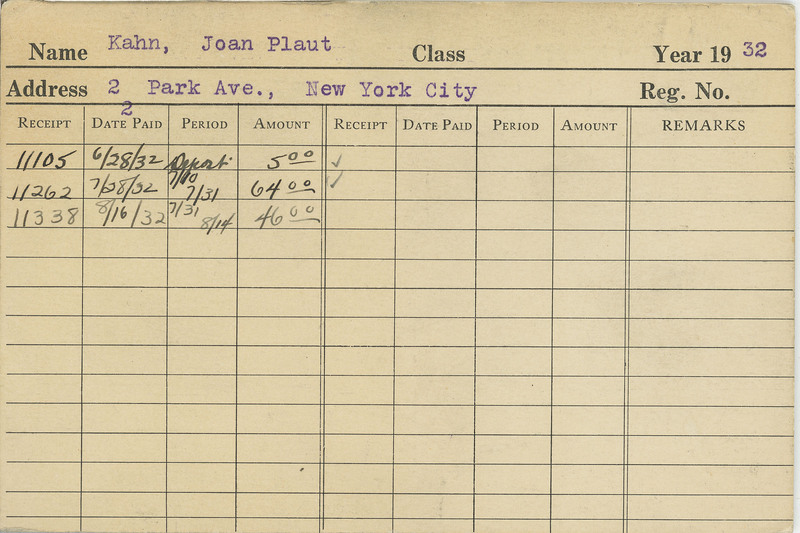 Name Kahn, Joan Plaut Class Year 19 32
Address 2 Park Ave., New York City Reg. No.
2
RECEIPT DATE PAID PERIOD AMOUNT RECEIPT DATE PAID PERIOD AMOUNT REMARKS
11105 6/28/32 5 00 ✓
11262 7/28/32 7/10 7/31 64 00 ✓
11338 8/16/32 7/31 8/14 46 00